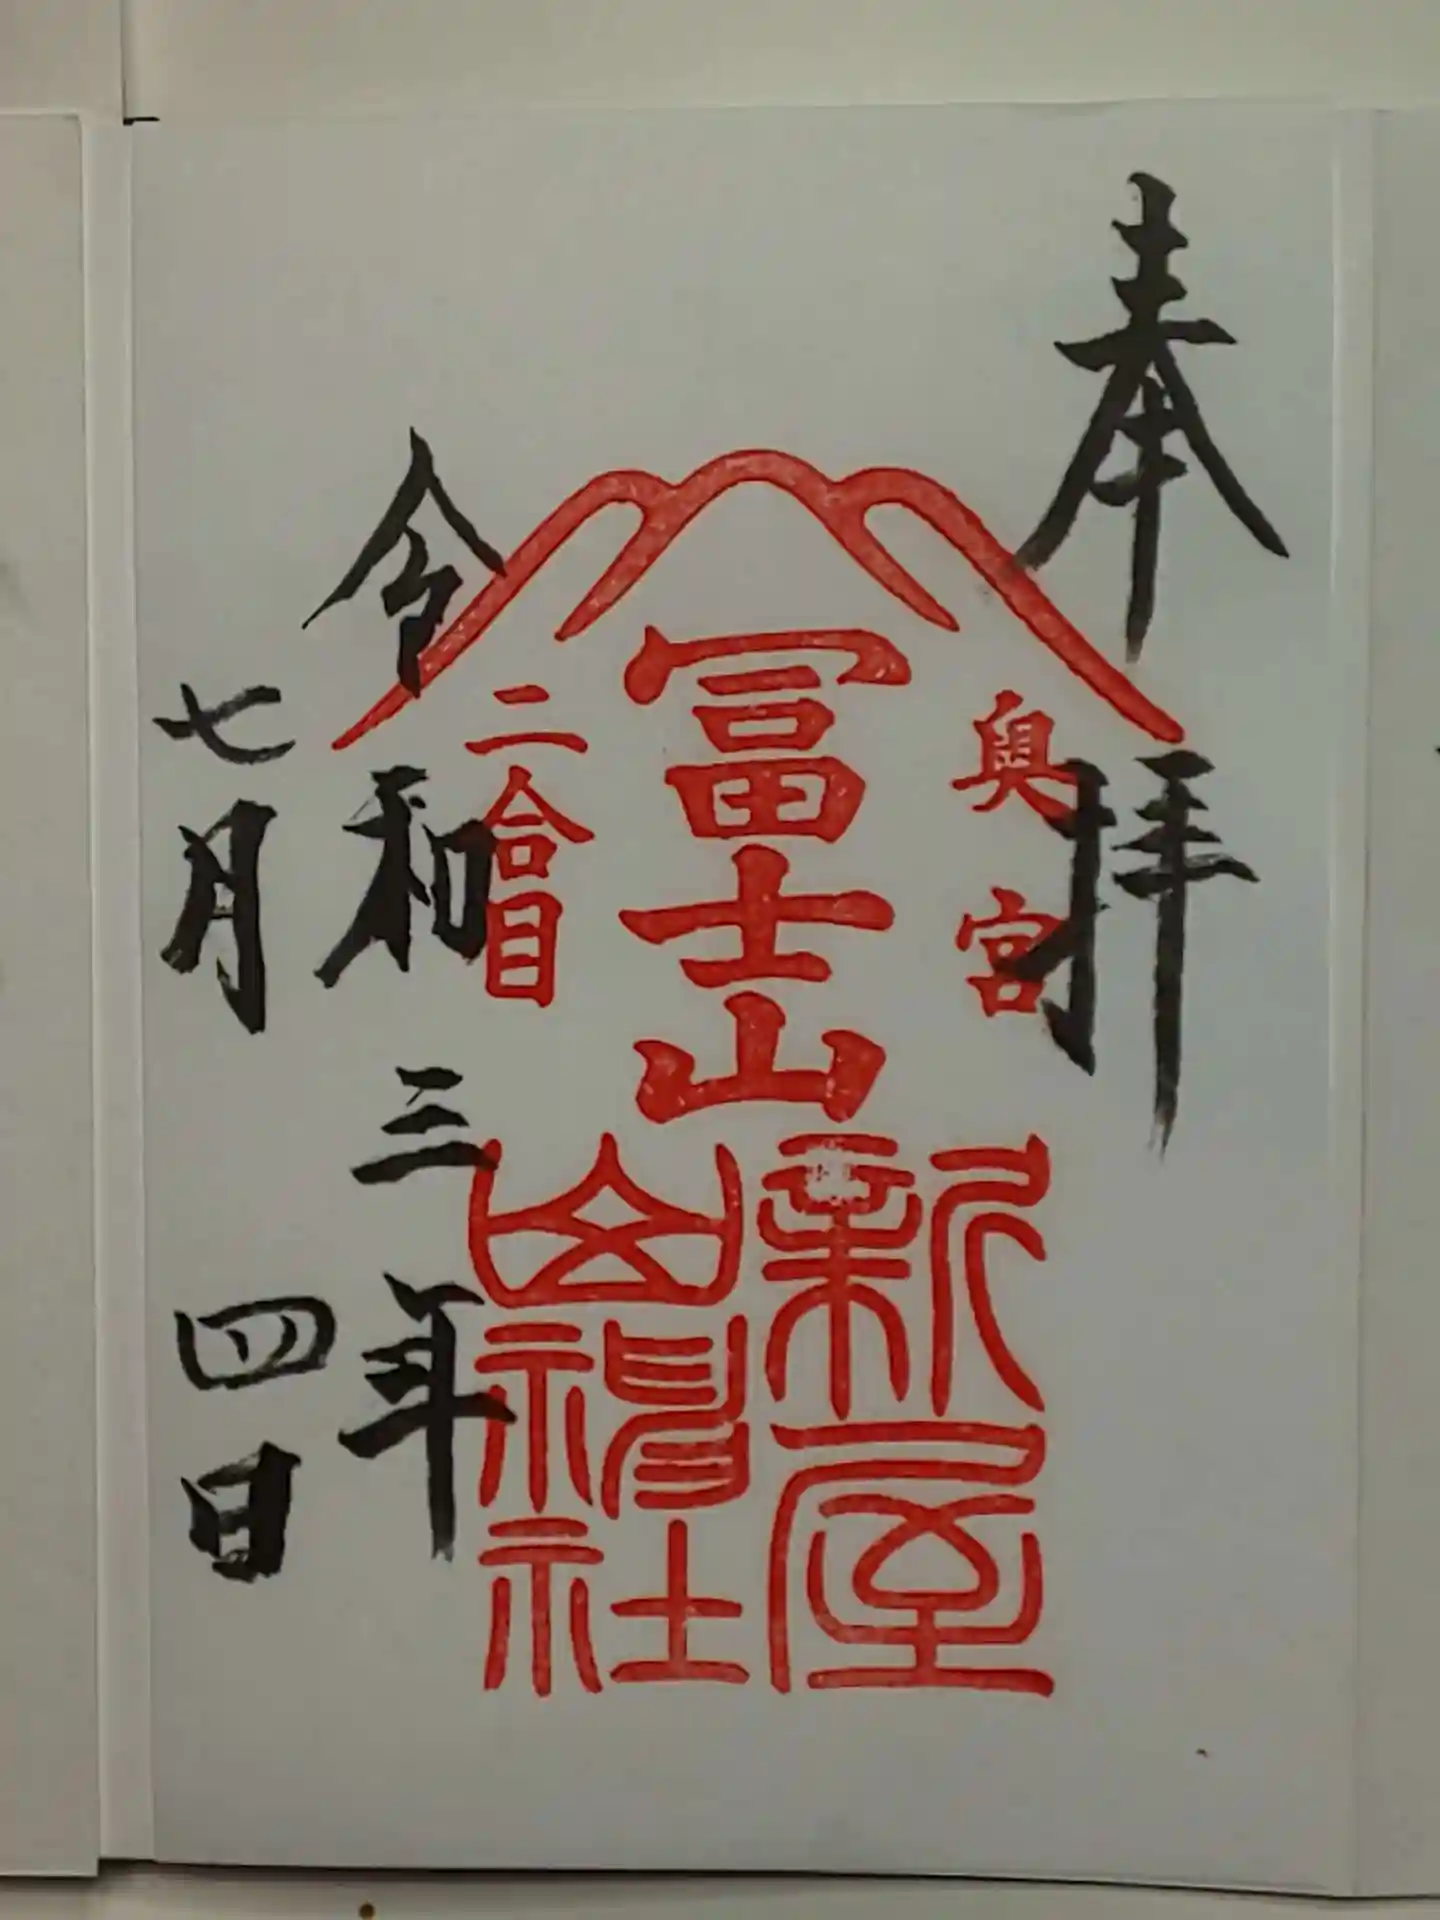 奉拝
奥宮
冨士山
二合目
新屋
山神社
令和三年
七月四日